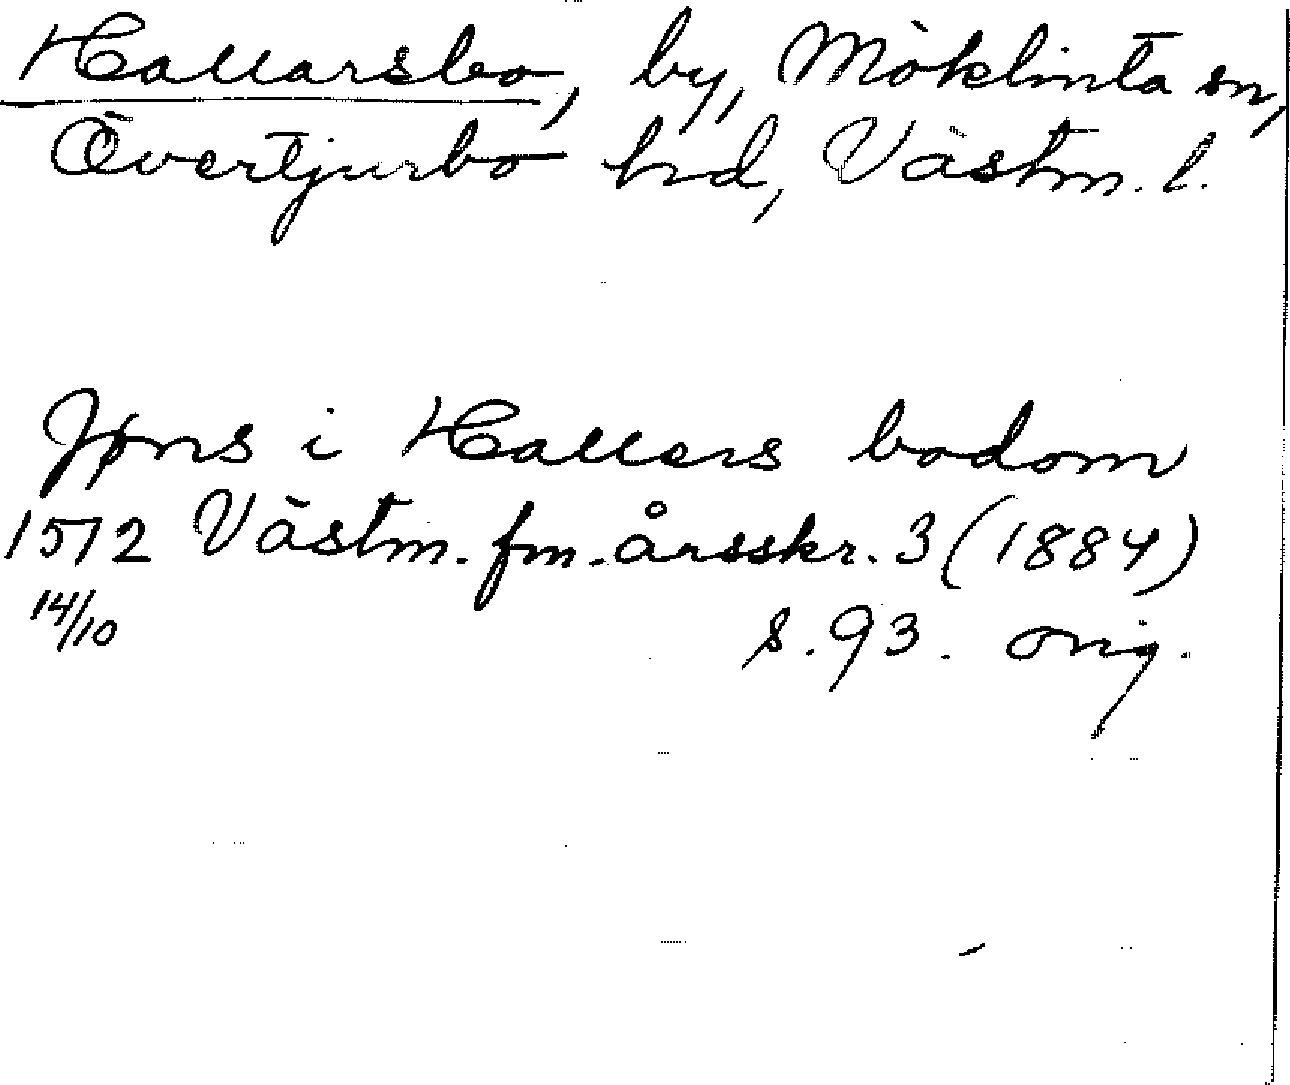 Hallarsbo, by, Möklinta sn,
Övertjurbo hd, Västm. l.
Jøns i Hallers bodom
1572 Västm. fm. årsskr. 3 (1884)
14/10 s. 93. orig.